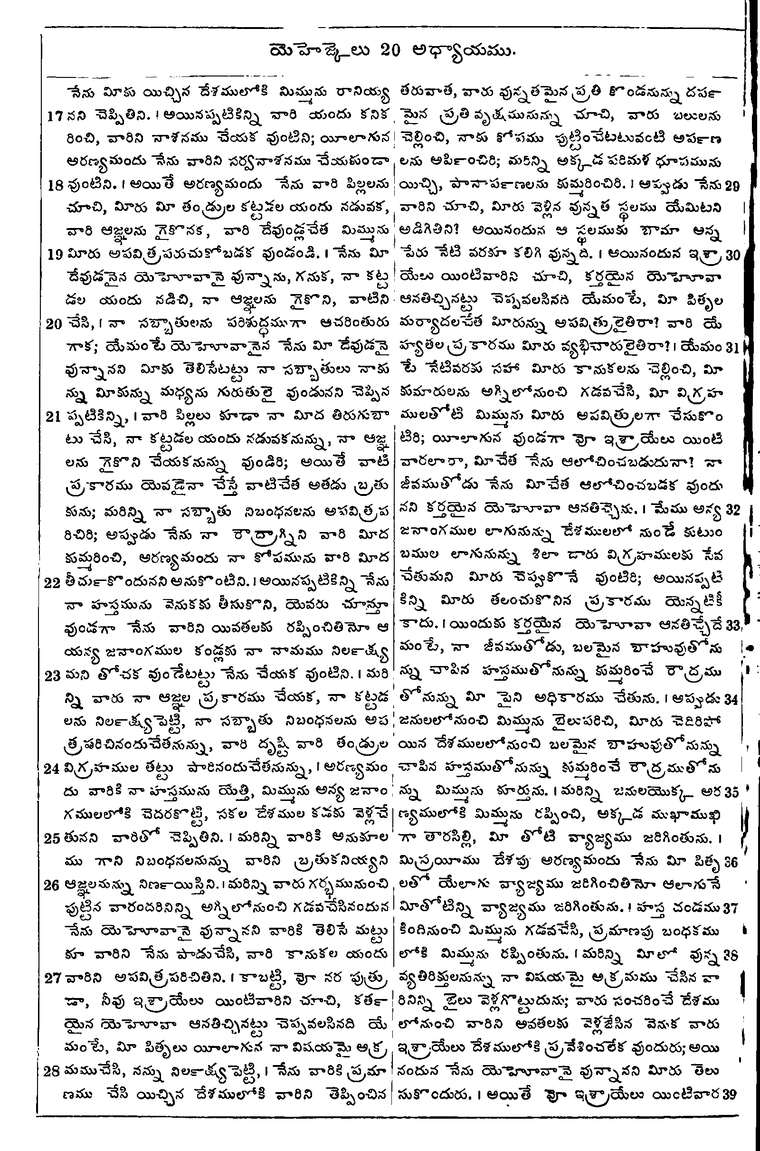 యెహెజ్కెలు 20 అధ్యాయము.
నేను మీకు యిచ్చిన దేశములోకి మిమ్మును రానియ్య
17 నని చెప్పితిని. । అయినప్పటికిన్ని వారి యందు కనిక
రించి, వారిని నాశనము చేయక వుంటిని; యీలాగున
అరణ్యమందు నేను వారిని సర్వనాశనము చేయకుండా
18 వుంటిని. । అయితే అరణ్యమందు నేను వారి పిల్లలను
చూచి, మీరు మీ తండ్రుల కట్టడల యందు నడువక,
వారి ఆజ్ఞలను గైకొనక, వారి దేవుండ్లచేత మిమ్మును
19 మీరు అపవిత్రపరుచుకోబడక వుండండి. । నేను మీ
దేవుడనైన యెహోవానై వున్నాను, గనుక, నా కట్ట
డల యందు నడిచి, నా ఆజ్ఞలను గైకొని, వాటిని
20 చేసి, । నా సబ్బాతులను పరిశుద్ధముగా ఆచరింతురు
గాక; యేమంటే యెహోవానైన నేను మీ దేవుడనై
వున్నానని మీకు తెలిసేటట్టు నా సబ్బాతులు నాకు
న్ను మీకున్ను మధ్యను గురుతులై వుండునని చెప్పిన
21 ప్పటికిన్ని, । వారి పిల్లలు కూడా నా మీద తిరుగుబా
టు చేసి, నా కట్టడల యందు నడువకనున్ను, నా ఆజ్ఞ
లను గైకొని చేయకనున్ను వుండిరి; అయితే వాటి
ప్రకారము యెవడైనా చేస్తే వాటిచేత అతడు బ్రతు
కును; మరిన్ని నా సబ్బాతు నిబంధనలను అపవిత్రప
రిచిరి; అప్పుడు నేను నా రౌద్రాగ్నిని వారి మీద
కుమ్మరించి, అరణ్యమందు నా కోపమును వారి మీద
22 తీర్చుకొందునని అనుకొంటిని. । అయినప్పటికిన్ని నేను
నా హస్తమును వెనుకకు తీసుకొని, యెవరు చూస్తూ
వుండగా నేను వారిని యివతలకు రప్పించితినో ఆ
యన్య జనాంగముల కండ్లకు నా నామము నిర్లక్ష్య
23 మని తోచక వుండేటట్టు నేను చేయక వుంటిని. । మరి
న్ని వారు నా ఆజ్ఞల ప్రకారము చేయక, నా కట్టడ
లను నిర్లక్ష్యపెట్టి, నా సబ్బాతు నిబంధనలను అప
త్రపరిచినందుచేతనున్ను, వారి దృష్టి వారి తండ్రుల
24 విగ్రహముల తట్టు పారినందుచేతనున్ను, । అరణ్యమం
దు వారికి నా హస్తమును యెత్తి, మిమ్మును అన్య జనాం
గములలోకి చెదరకొట్టి, సకల దేశముల కడకు వెళ్లచే
25 తునని వారితో చెప్పితిని. । మరిన్ని వారికి అనుకూల
ము గాని నిబంధనలనున్ను వారిని బ్రతుకనియ్యని
26 ఆజ్ఞలనున్ను నిర్ణాయిస్తిని. । మరిన్ని వారు గర్భమునుంచి
పుట్టిన వారందరినిన్ని అగ్నిలోనుంచి గడవచేసినందున
నేను యెహోవానై వున్నానని వారికి తెలిసే మట్టు
కూ వారిని నేను పాడుచేసి, వారి కానుకల యందు
27 వారిని అపవిత్రపరిచితిని. । కాబట్టి, ఓ నర పుత్రు
డా, నీవు ఇశ్రాయేలు యింటివారిని చూచి, కర్త
యైన యెహోవా ఆనతిచ్చినట్టు చెప్పవలసినది యే
మంటే, మీ పితృలు యీలాగున నా విషయమై అక్ర
28 మముచేసి, నన్ను నిర్లక్ష్యపెట్టి, । నేను వారికి ప్రమా
ణము చేసి యిచ్చిన దేశములోకి వారిని తెప్పించిన
తరువాత, వారు వున్నతమైన ప్రతి కొండనున్ను దర్ప
మైన ప్రతి వృక్షమునున్ను చూచి, వారు బలులను
చెల్లించి, నాకు కోపము పుట్టించేటటువంటి అర్పణ
లను అర్పించిరి; మరిన్ని అక్కడ పరిమళ ధూపమును
యిచ్చి, పానార్పణలను కుమ్మరించిరి. । అప్పుడు నేను 29
వారిని చూచి, మీరు వెళ్లిన వున్నత స్థలము యేమిటని
అడిగితిని? అయినందున ఆ స్థలముకు బామా అన్న
పేరు నేటి వరకూ కలిగి వున్నది. । అయినందున ఇశ్రా 30
యేలు యింటివారిని చూచి, కర్తయైన యెహోవా
ఆనతిచ్చినట్టు చెప్పవలసినది యేమంటే, మీ పితృల
మర్యాదలచేత మీరున్ను అపవిత్రులైతిరా? వారి యే
హ్యతల ప్రకారము మీరు వ్యభిచారులైతిరా? । యేమం 31
టే నేటివరకు సహా మీరు కానుకలను చెల్లించి, మీ
కుమారులను అగ్నిలోనుంచి గడవచేసి, మీ విగ్రహ
ములతోటి మిమ్మును మీరు అపవిత్రులగా చేసుకొం
టిరి; యీలాగున వుండగా ఓ ఇశ్రాయేలు యింటి
వారలారా, మీచేత నేను ఆలోచించబడుదునా? నా
జీవముతోడు నేను మీచేత ఆలోచించబడక వుందు
నని కర్తయైన యెహోవా ఆనతిచ్చెను. । మేము అన్య 32
జనాంగముల లాగునున్ను దేశములలో నుండే కుటుం
బముల లాగునున్ను శిలా దారు విగ్రహములకు సేవ
చేతుమని మీరు చెప్పుకొనే వుంటిరి; అయినప్పటి
కిన్ని మీరు తలంచుకొనిన ప్రకారము యెన్నటికీ
కాదు. । యిందుకు కర్తయైన యెహోవా ఆనతిచ్చేదే 33
మంటే, నా జీవముతోడు, బలమైన బాహువుతోను
న్ను చాపిన హస్తముతోనున్ను కుమ్మరించే రౌద్రము
తోనున్ను మీ పైని అధికారము చేతును. । అప్పుడు 34
జనులలోనుంచి మిమ్మును బైలుపరిచి, మీరు చెదిరిపో
యిన దేశములలోనుంచి బలమైన బాహువుతోనున్ను
చాపిన హస్తముతోనున్ను కుమ్మరించే రౌద్రముతోను
న్ను మిమ్మును కూర్తును. । మరిన్ని జనులయొక్క అర 35
ణ్యములోకి మిమ్మును రప్పించి, అక్కడ ముఖాముఖి
గా తారసిల్లి, మీ తోటి వ్యాజ్యము జరిగింతును. ।
మిస్రయీము దేశపు అరణ్యమందు నేను మీ పితృ 36
లతో యేలాగు వ్యాజ్యము జరిగించితినో ఆలాగునే
మీతోటిన్ని వ్యాజ్యము జరిగింతును. । హస్త దండము 37
కిందినుంచి మిమ్మును గడవచేసి, ప్రమాణపు బంధకము
లోకి మిమ్మును రప్పింతును. । మరిన్ని మీలో వున్న 38
వ్యతిరిక్తులనున్ను నా విషయమై అక్రమము చేసిన వా
రినిన్ని బైలు వెళ్లగొట్టుదును; వారు సంచరించే దేశము
లోనుంచి వారిని అవతలకు వెళ్లజేసిన వెనుక వారు
ఇశ్రాయేలు దేశములోకి ప్రవేశించలేక వుందురు; అయి
నందున నేను యెహోవానై వున్నానని మీరు తెలు
సుకొందురు. । అయితే ఓ ఇశ్రాయేలు యింటివార 39